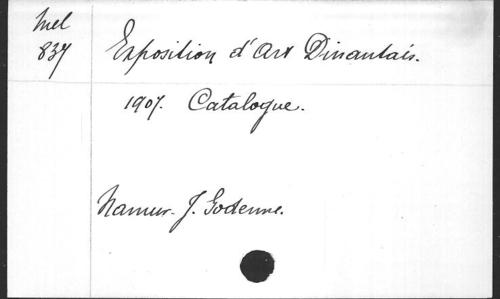 Mel
837
Exposition d'Art Dinantais.
1907. Catalogue.
Namur. J. Godenne.